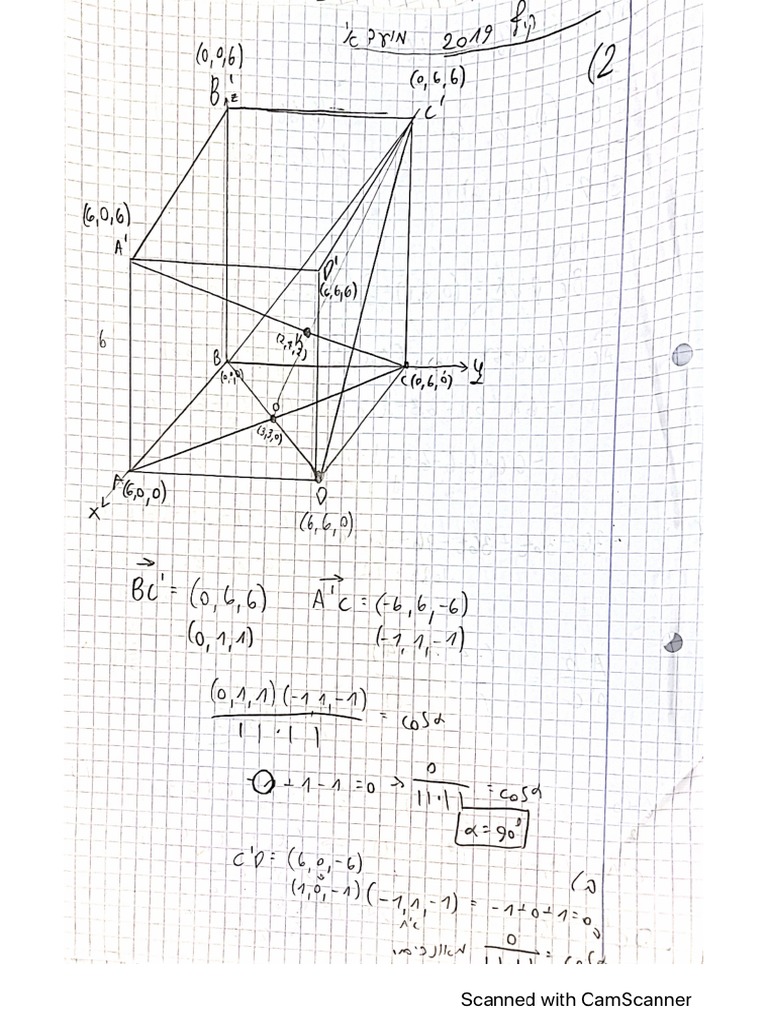 קיץ 2019 מועד א'
(2
(0,0,6)
B'
z
(0,6,6)
C'
(6,0,6)
A'
D'
(6,6,6)
6
K
B
(0,0,0)
C(0,6,0)
y
O
(3,3,0)
A(6,0,0)
x
D
(6,6,0)
BC' = (0,6,6) A'C = (-6,6,-6)
(0,1,1) (-1,1,-1)
(0,1,1)(-1,1,-1) = cosα
| | · | |
0 + 1 - 1 = 0 → 0 = cosα
| | · | |
α = 90°
C'D = (6,0,-6)
(1,0,-1)(-1,1,-1) = -1+0+1=0
A'C
0
Scanned with CamScanner